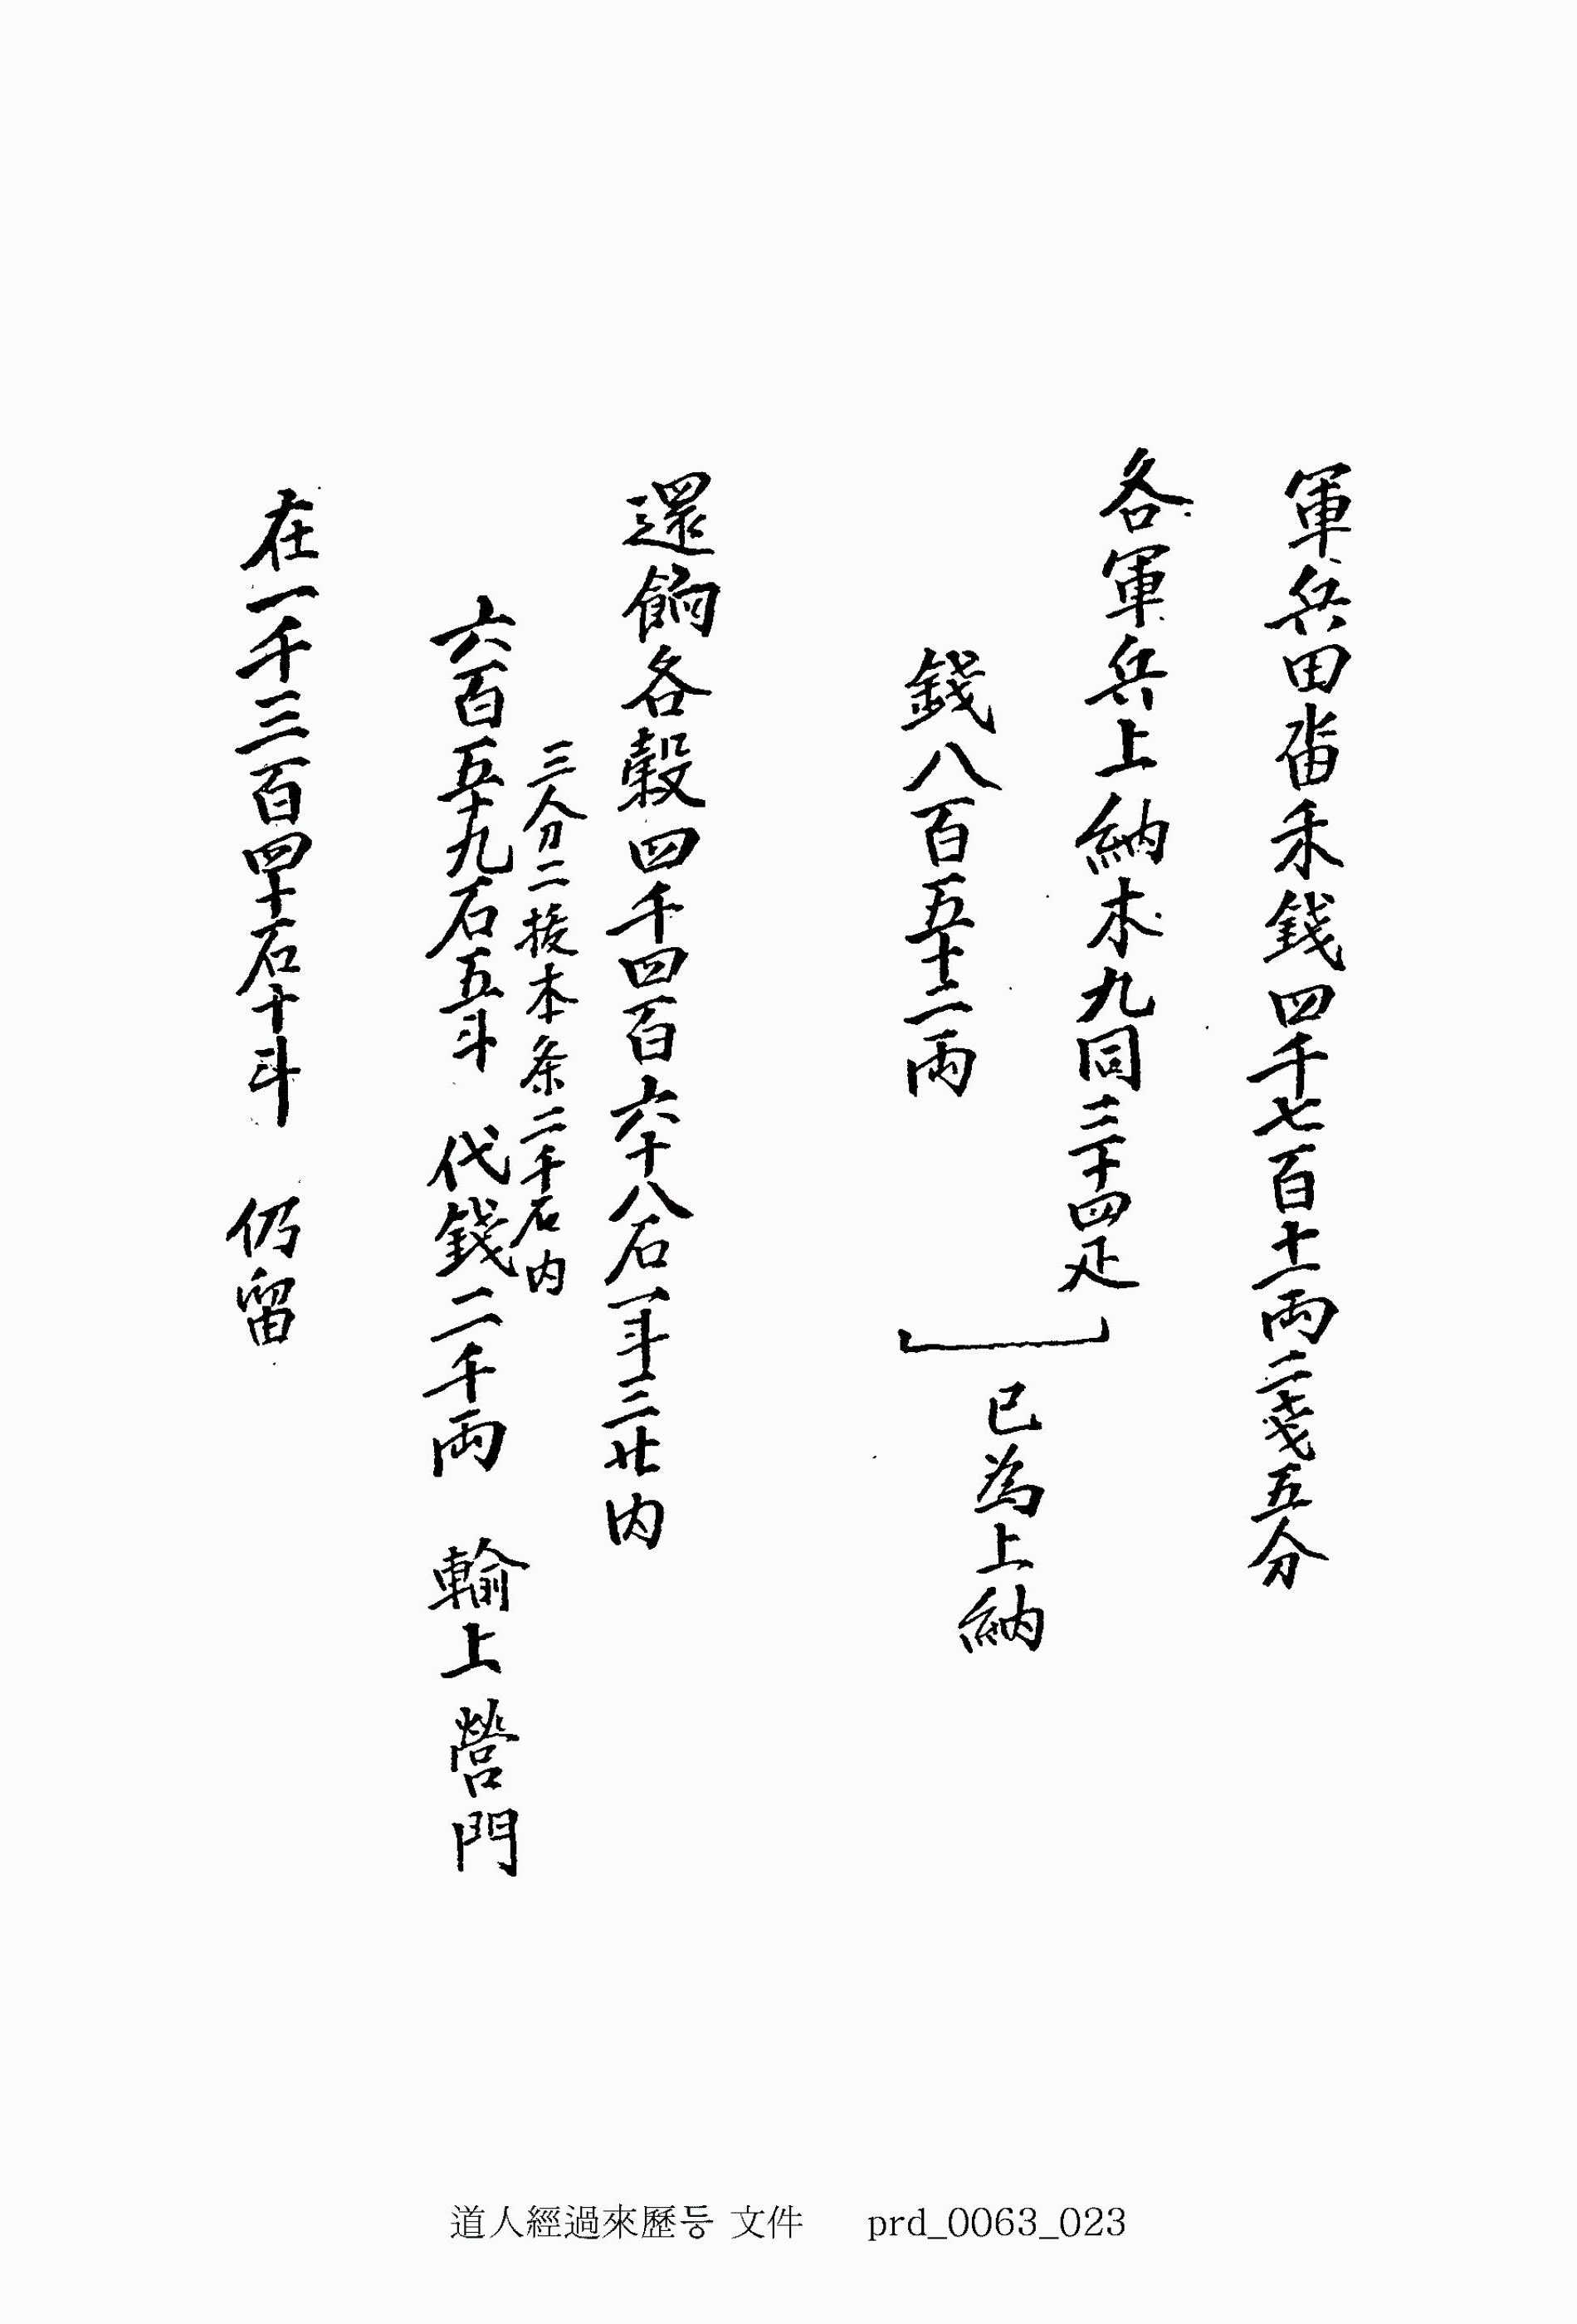 軍兵田畓禾錢四千七百十一兩二戔五分
各軍兵上納木九同三十四疋
錢八百五十二兩
已爲上納
還餉各穀四千四百六十八石一斗三廾內
三分二接本条二千石內
六百五十九石五斗 代錢二千兩 輸上營門
在一千三百四十石十斗 仍留
道人經過來歷등 文件 prd_0063_023